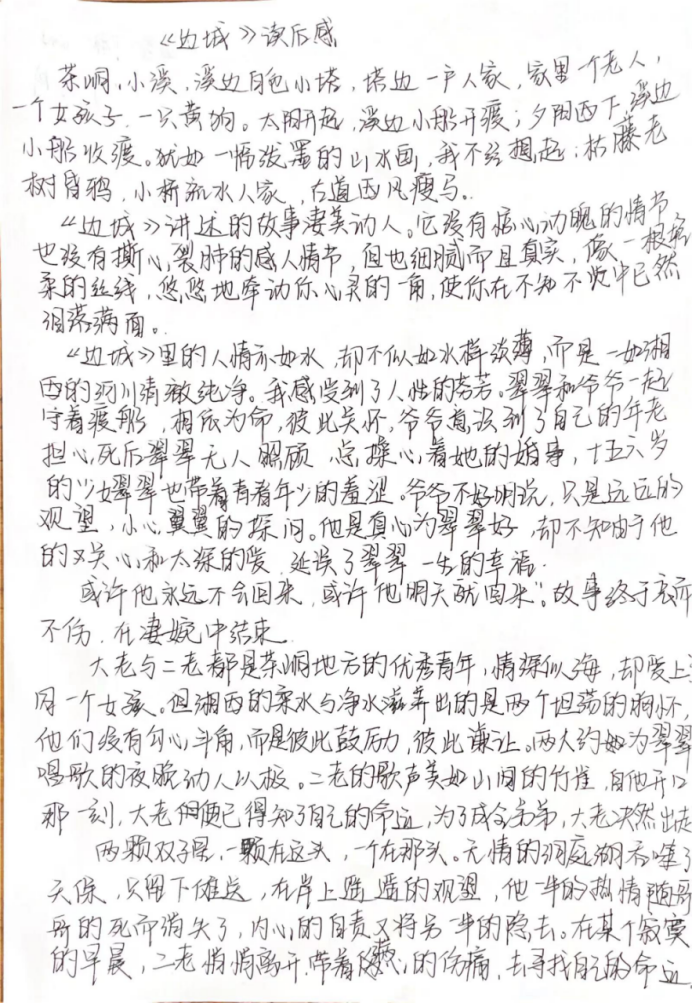 《边城》读后感
茶峒，小溪，溪边白色小塔，塔边一户人家，家里一个老人，
一个女孩子，一只黄狗。太阳升起，溪边小船开渡；夕阳西下，溪边
小船收渡。犹如一幅泼墨的山水画，我不经想起：枯藤老
树昏鸦，小桥流水人家，古道西风瘦马。
《边城》讲述的故事凄美动人。它没有惊心动魄的情节
也没有撕心裂肺的感人情节，但也细腻而且真实，像一根
柔的丝线，悠悠地牵动你心灵的一角，使你在不知不觉中已然
泪落满面。
《边城》里的人情亦如水，却不似如水样淡薄，而是一如湘
西的河川清澈纯净。我感受到了人性的芳芳。翠翠和爷爷一起
守着渡船，相依为命，彼此关怀，爷爷意识到了自己的年老
担心死后翠翠无人照顾，总操心着她的婚事，十五六岁
的少女翠翠也带着有着年少的羞涩。爷爷不好明说，只是远远的
观望，小心翼翼的探问。他是真心为翠翠好，却不知由于他
的关心和太深的爱，延误了翠翠一生的幸福。
或许他永远不会回来，或许他明天就回来"。故事终于哀而
不伤，在凄婉中结束
大老与二老都是茶峒地方的优秀青年，情深似海，却爱上
同一个女孩。但湘西的柔水与净水滋养出的是两个坦荡的胸怀，
他们没有勾心斗角，而是彼此鼓励，彼此谦让。两人约好为翠翠
唱歌的夜晚动人以极。二老的歌声美如山间的竹雀，自他开口
那一刻，大老便已得知了自己的命运，为了成全弟弟，大老决然出走
两颗双子星，一颗在这头，一个在那头。无情的洞庭湖吞噬了
天保，只留下傩送，在岸上遥遥的观望，他一半的热情随哥
哥的死而消失了，内心的自责又将另一半的隐去。在某个寂寞
的早晨，二老悄悄离开，带着心的伤痛，去寻找自己的命运。